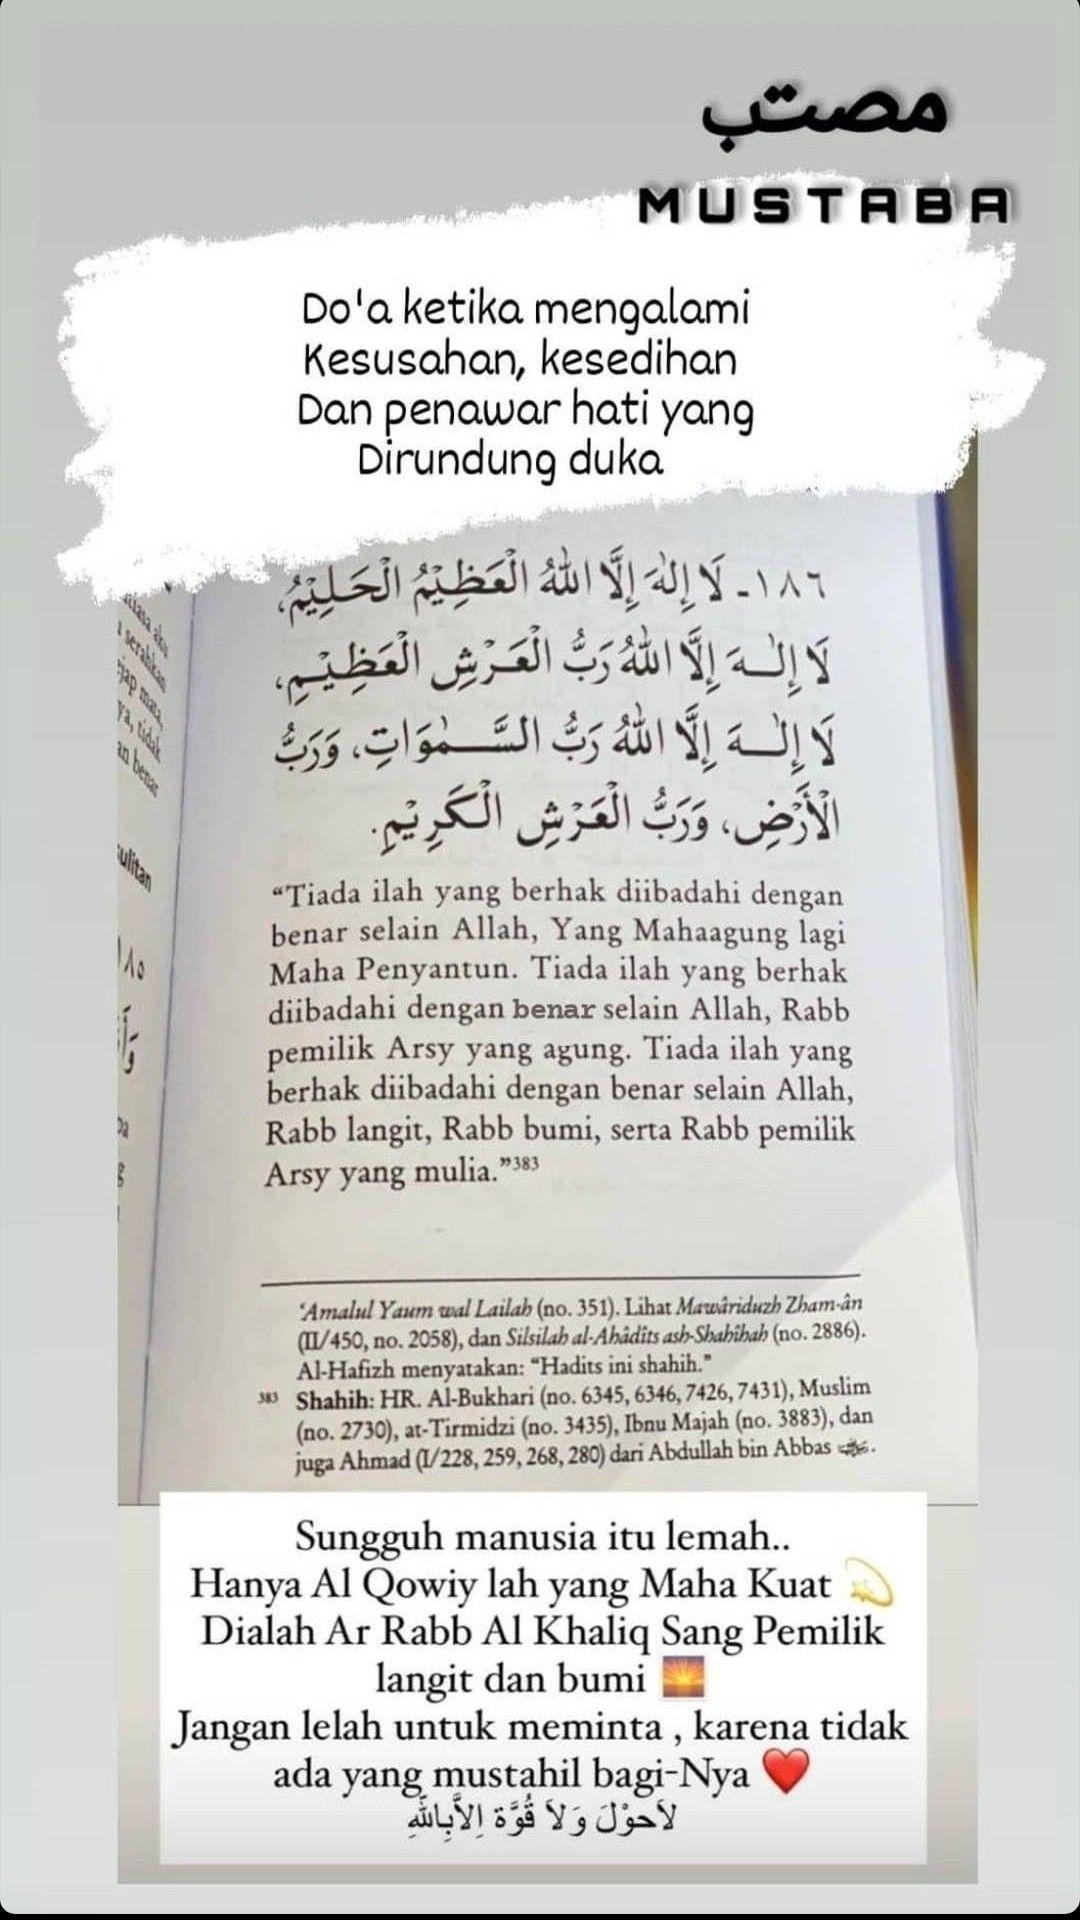 مصتب
MUSTABA
Do'a ketika mengalami
Kesusahan, kesedihan
Dan penawar hati yang
Dirundung duka
١٨٦- لَا إِلٰهَ إِلَّا اللّٰهُ الْعَظِيْمُ الْحَلِيْمُ،
لَا إِلٰـهَ إِلَّا اللّٰهُ رَبُّ الْعَرْشِ الْعَظِيْمِ،
لَا إِلٰـهَ إِلَّا اللّٰهُ رَبُّ السَّـمٰوَاتِ، وَرَبُّ
الْأَرْضِ، وَرَبُّ الْعَرْشِ الْكَرِيْمِ.
“Tiada ilah yang berhak diibadahi dengan
benar selain Allah, Yang Mahaagung lagi
Maha Penyantun. Tiada ilah yang berhak
diibadahi dengan benar selain Allah, Rabb
pemilik Arsy yang agung. Tiada ilah yang
berhak diibadahi dengan benar selain Allah,
Rabb langit, Rabb bumi, serta Rabb pemilik
Arsy yang mulia.”383
‘Amalul Yaum wal Lailah (no. 351). Lihat Mawâriduzh Zham-ân
(II/450, no. 2058), dan Silsilah al-Ahâdîts ash-Shahîhah (no. 2886).
Al-Hafizh menyatakan: “Hadits ini shahih.”
383 Shahih: HR. Al-Bukhari (no. 6345, 6346, 7426, 7431), Muslim
(no. 2730), at-Tirmidzi (no. 3435), Ibnu Majah (no. 3883), dan
juga Ahmad (I/228, 259, 268, 280) dari Abdullah bin Abbas
Sungguh manusia itu lemah..
Hanya Al Qowiy lah yang Maha Kuat 💫
Dialah Ar Rabb Al Khaliq Sang Pemilik
langit dan bumi 🌅
Jangan lelah untuk meminta , karena tidak
ada yang mustahil bagi-Nya ❤️
لاَحوْلَ وَلاَ قُوَّة اِلاَّبِاللَّهِ